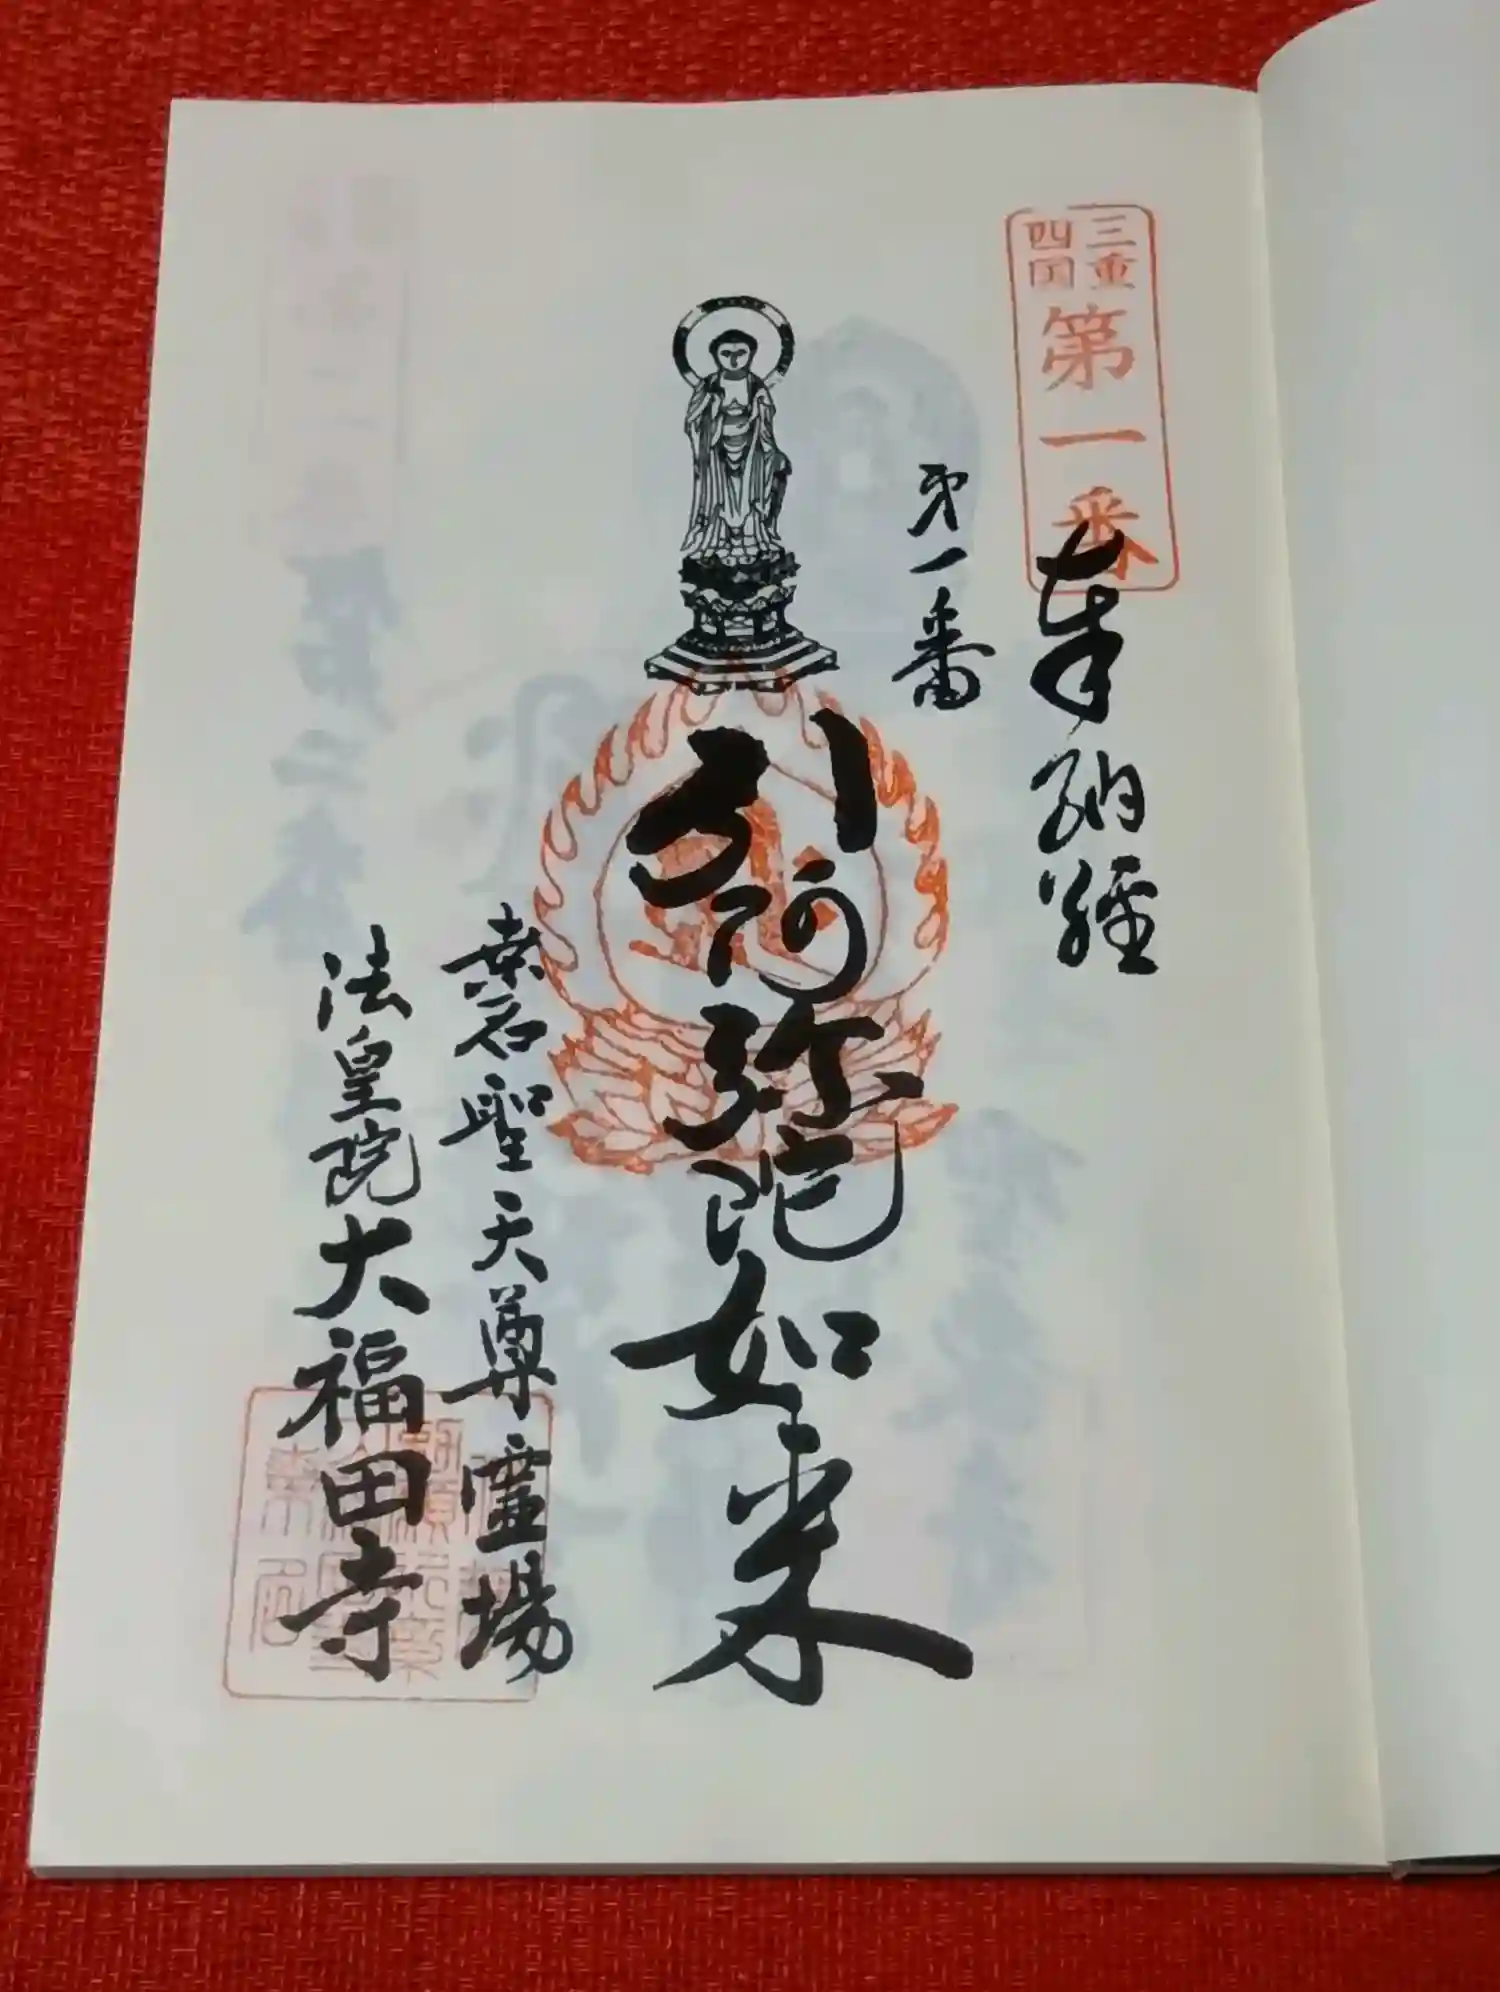 三重四国第一番
奉納経
第一番
阿弥陀如来
桑名聖天尊霊場
法皇院大福田寺